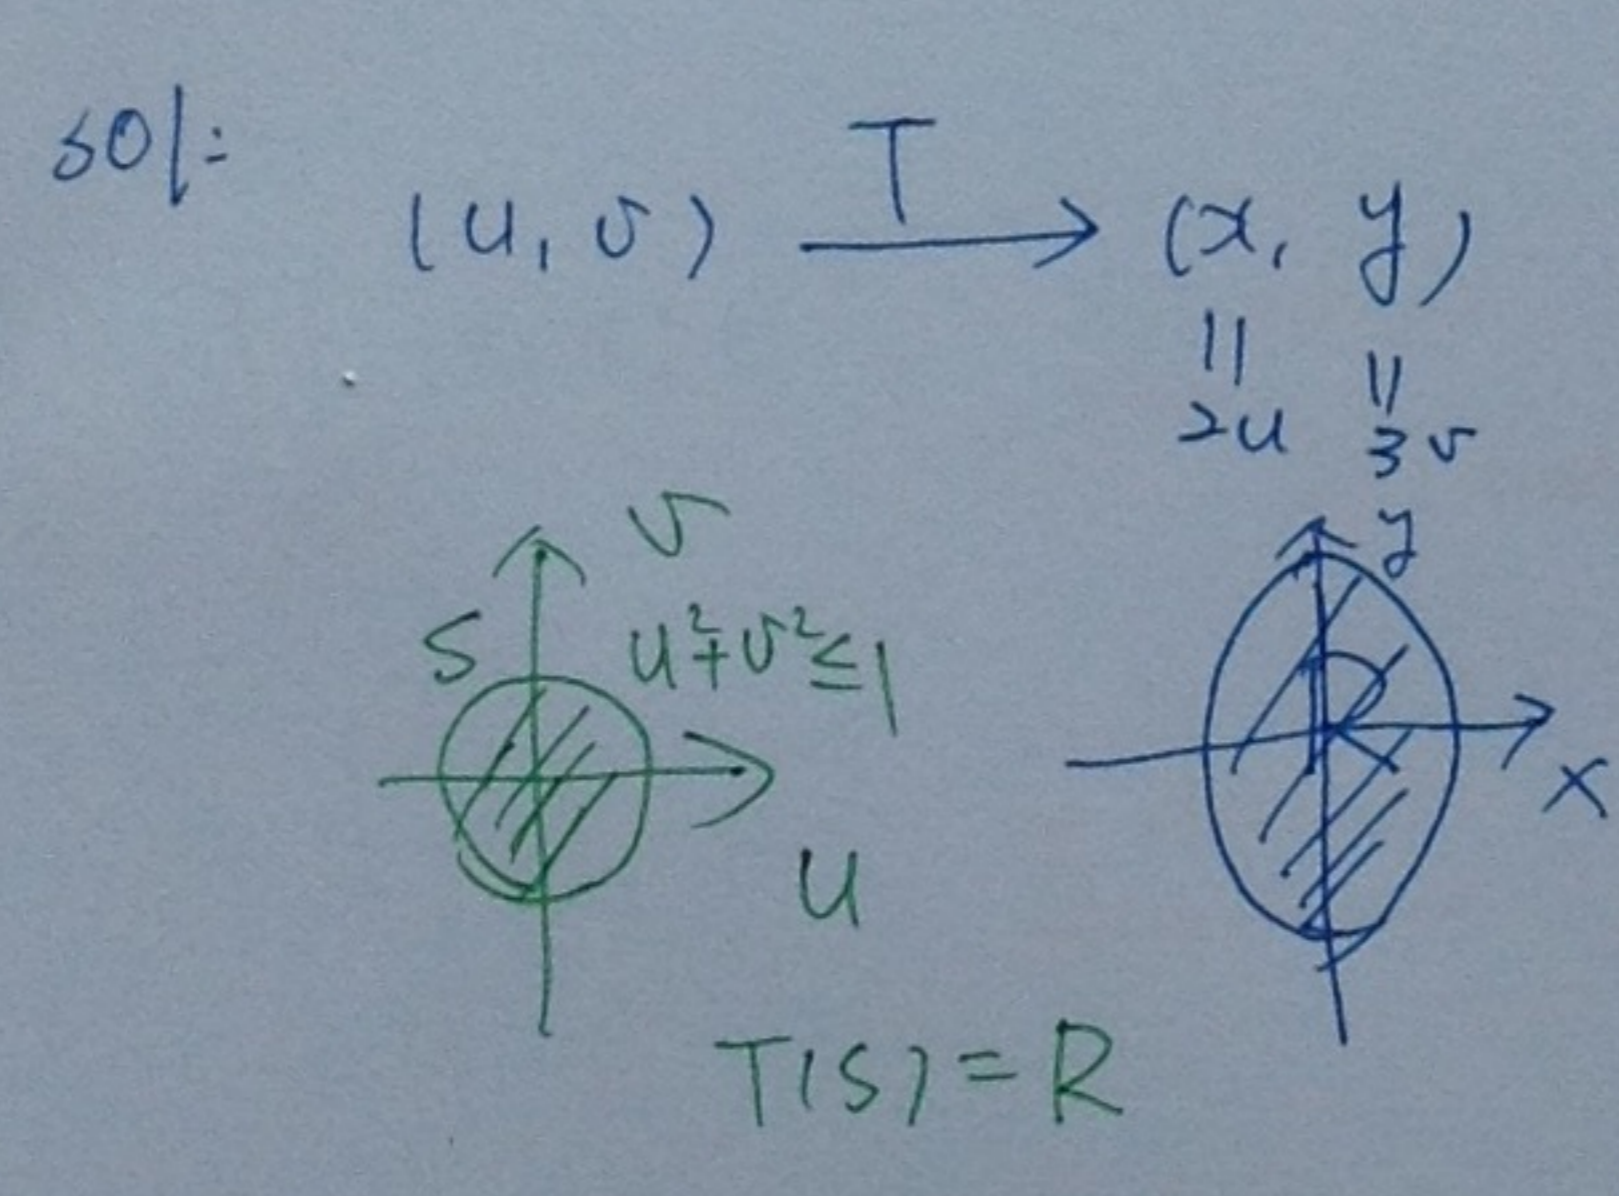 sol:
(u, v) T (x, y)
|| ||
2u 3v
v y
S u²+v²≤1 R
u x
T(S) = R